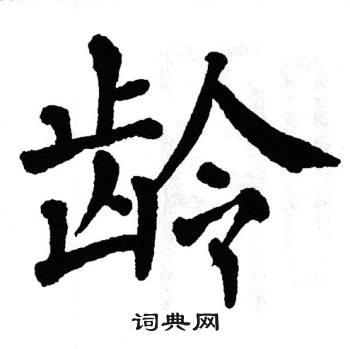 龄
词典网